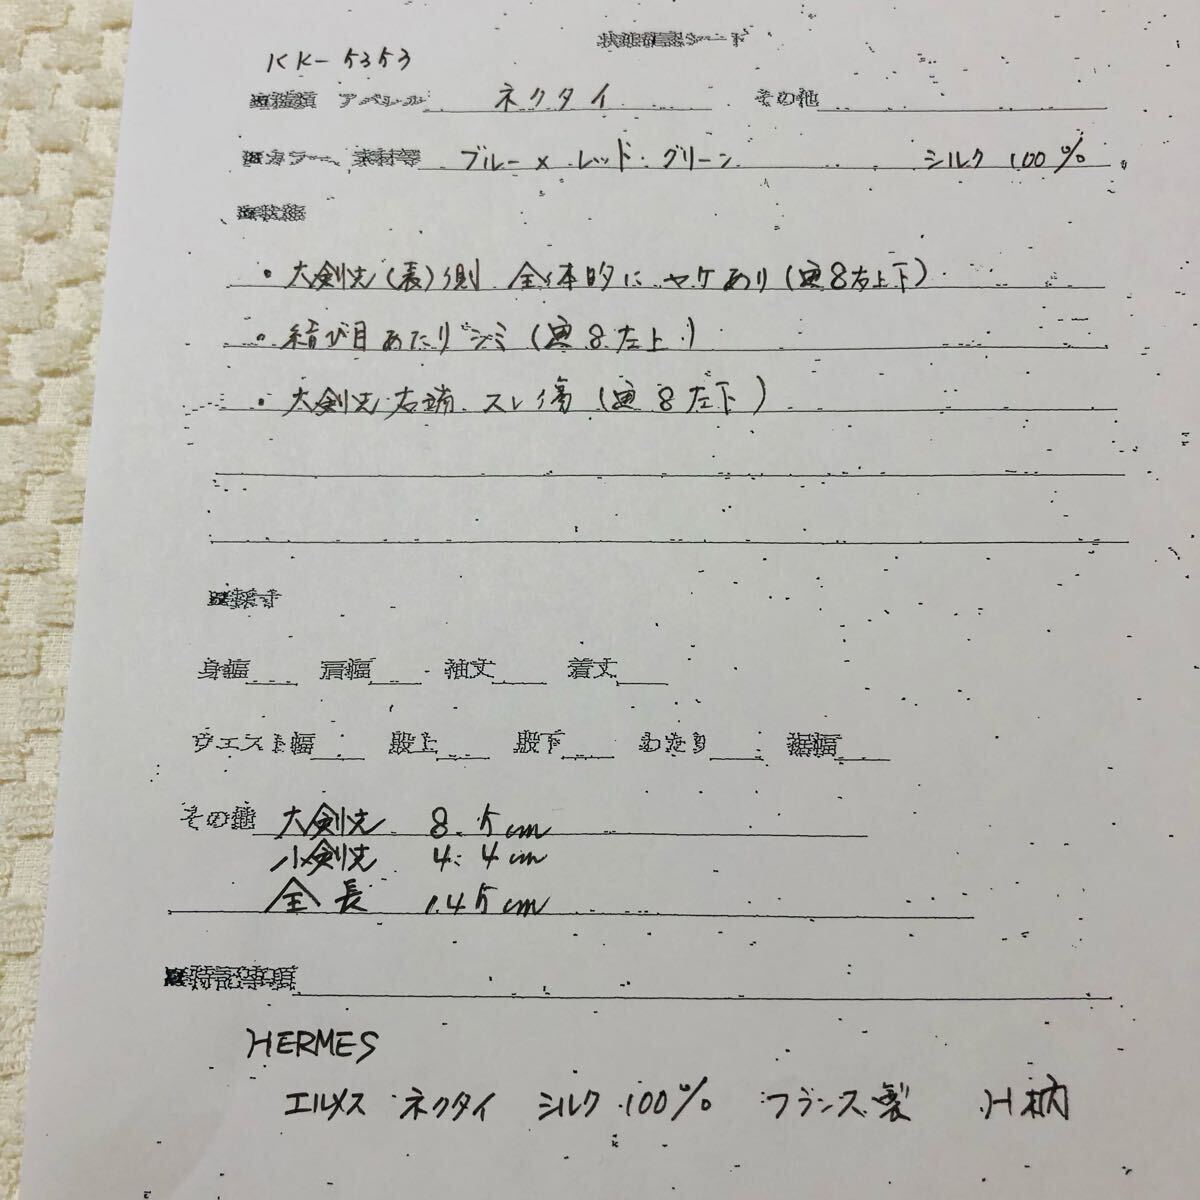 状態確認シート
KK-5353
■種類 アパレル ネクタイ その他
■カラー、素材等 ブルー×レッド・グリーン シルク 100%
■状態
・大剣先(表)側 全体的に ヤケあり(画8右上下)
・結び目あたり シミ(画8左上)
・大剣先右端 スレ傷(画8左下)
■採寸
身幅 肩幅 袖丈 着丈
ウエスト幅 股上 股下 わたり 裾幅
その他 大剣先 8.5cm
小剣先 4.4cm
全長 145cm
■特記事項
HERMES
エルメス ネクタイ シルク 100% フランス製 H柄